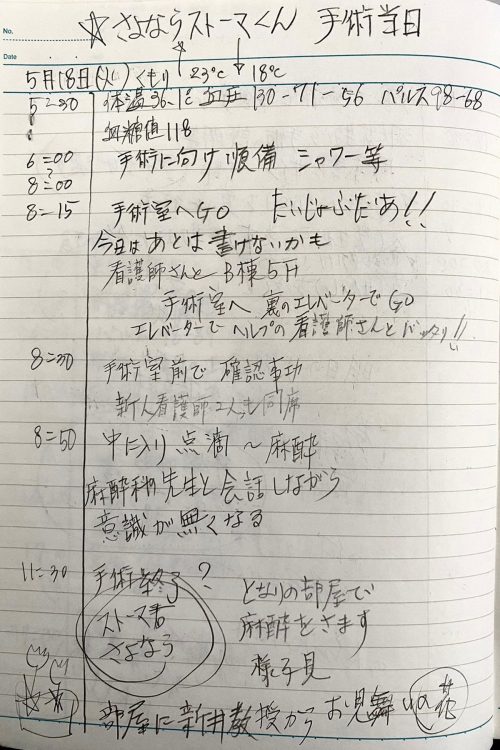 No.
Date
☆さよならストーマくん 手術当日
5月18日(火) くもり ↑23℃ ↓18℃
5=30 体温36-1℃ 血圧 130-71-56 パルス98-68
血糖値118
6=00 手術に向け準備 シャワー等
8=00
8=15 手術室へGO だいじょぶだあ!!
今日はあとは書けないかも
看護師さんと B棟5F
手術室へ 裏のエレベーターでGO
エレベーターでヘルプの看護師さんとバッタリ!!
8=30 手術室前で 確認事項
新人看護師2人も同席
8=50 中に入り 点滴~麻酔
麻酔科の先生と会話しながら
意識が無くなる
11=30 手術終了?
ストーマ君
さよなら
となりの部屋で
麻酔をさます
様子見
部屋に新井教授からお見舞いの花